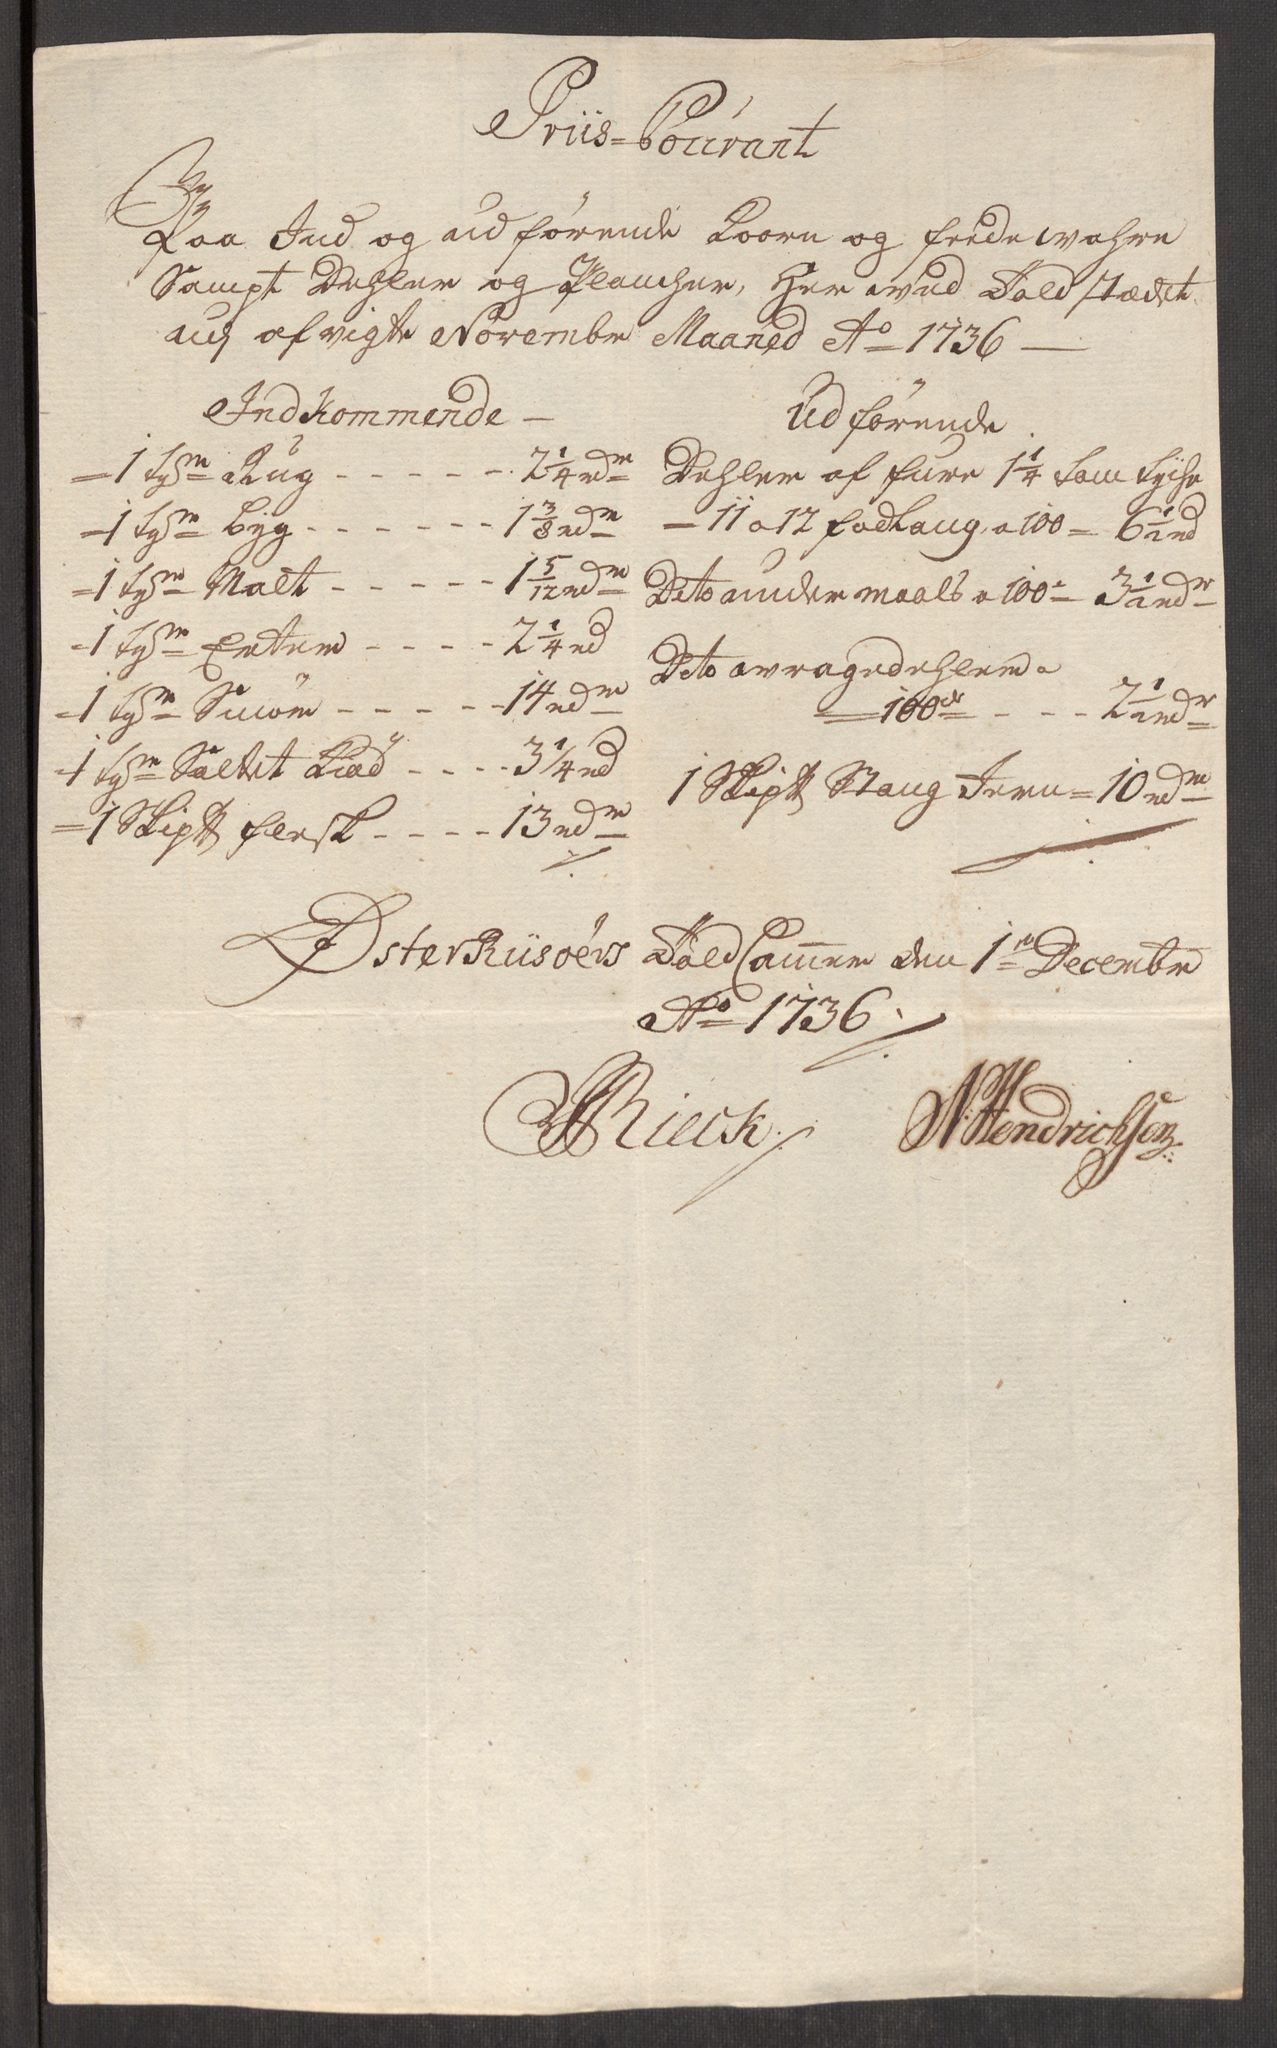 Priis-Courant
Paa Ind og udförende Koorn og fede wahre
Sampt Dehler og Plancher, Her wed Told stædet
udj afvigte Novembr Maaned Ao 1736 —
Indkommende — 
= 1 tøn Rug - - - - - 2 1/4 rdr
= 1 tøn byg - - - - - - 1 3/8 rdr
= 1 tøn Malt - - - - - 1 5/12 rdr
= 1 tøn Erter - - - - 2 1/4 rd
= 1 tøn Smör - - - - - 14 rdr
= 1 tøn Saltet Kiöd - - - - 3 1/4 rd
= 1 Skip℔ flesk - - - - 13 rdr
Udförende
Dehler af fure 1 1/4 tom tyche
— 11 a 12 fod lang, a 100 = 6 1/2 rd
Dito under maals a 100 = 3 1/2 rdr
Dito wragedehler a
= 100de - - - 2 1/2 rdr
1 Skip℔ Stang Jern = 10 rdr
Østerriisöers Told Cammer den 1te Decembr
Ao 1736
Rieck
N. Hendrichsen